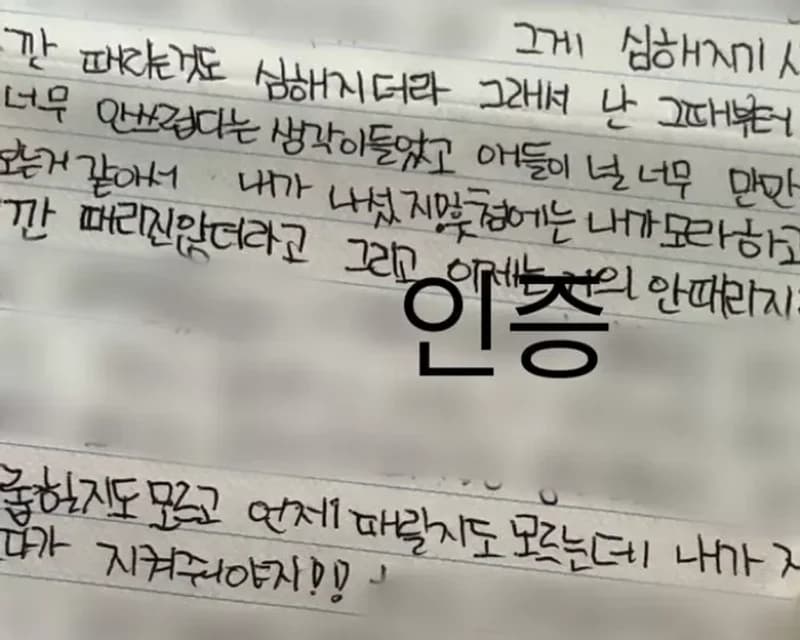 그게 심해지기 시
깐 때리는것도 심해지더라 그래서 난 그때부터
너무 안쓰럽다는 생각이들었고 애들이 널 너무 만만
보는거 같아서 내가 나섰지 몇 첨에는 내가 모라하고
깐 때리진않더라고 그리고 이제는 거의 안때리지
인증
롭힐지도 모르고 언제 때릴지도 모르는데 내가 지
다가 지켜줘야지!!